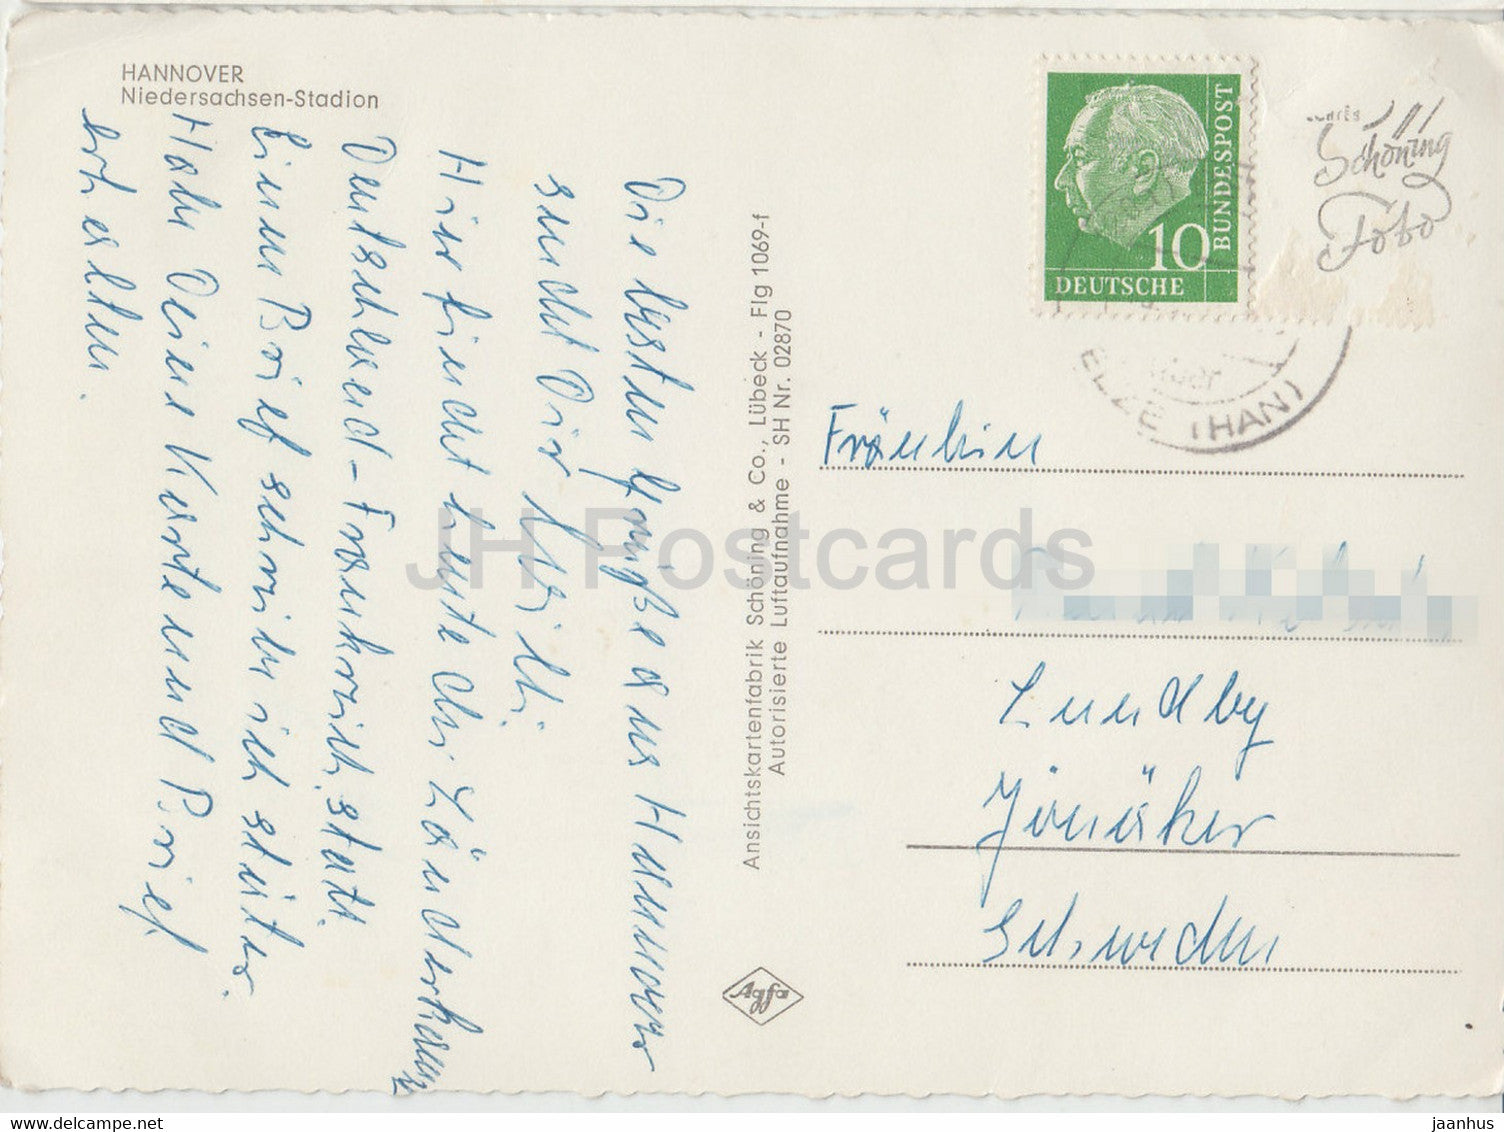 HANNOVER
Niedersachsen-Stadion
Die besten Grüße aus Hannover
sendet Dir Uwilli.
Hier findet heute der Länderkampf
Deutschland-Frankreich statt.
Einen Brief schreibe ich später.
Habe Deine Karte und Brief
erhalten.
Ansichtskartenfabrik Schöning & Co., Lübeck - Flg 1069-f
Autorisierte Luftaufnahme - SH Nr. 02870
Agfa
10
DEUTSCHE
BUNDESPOST
Schöning
Foto
ELZE (HAN)
Fräulein
Lundby
Jönåker
Schweden
JH Postcards
delcampe.net
jaanhus